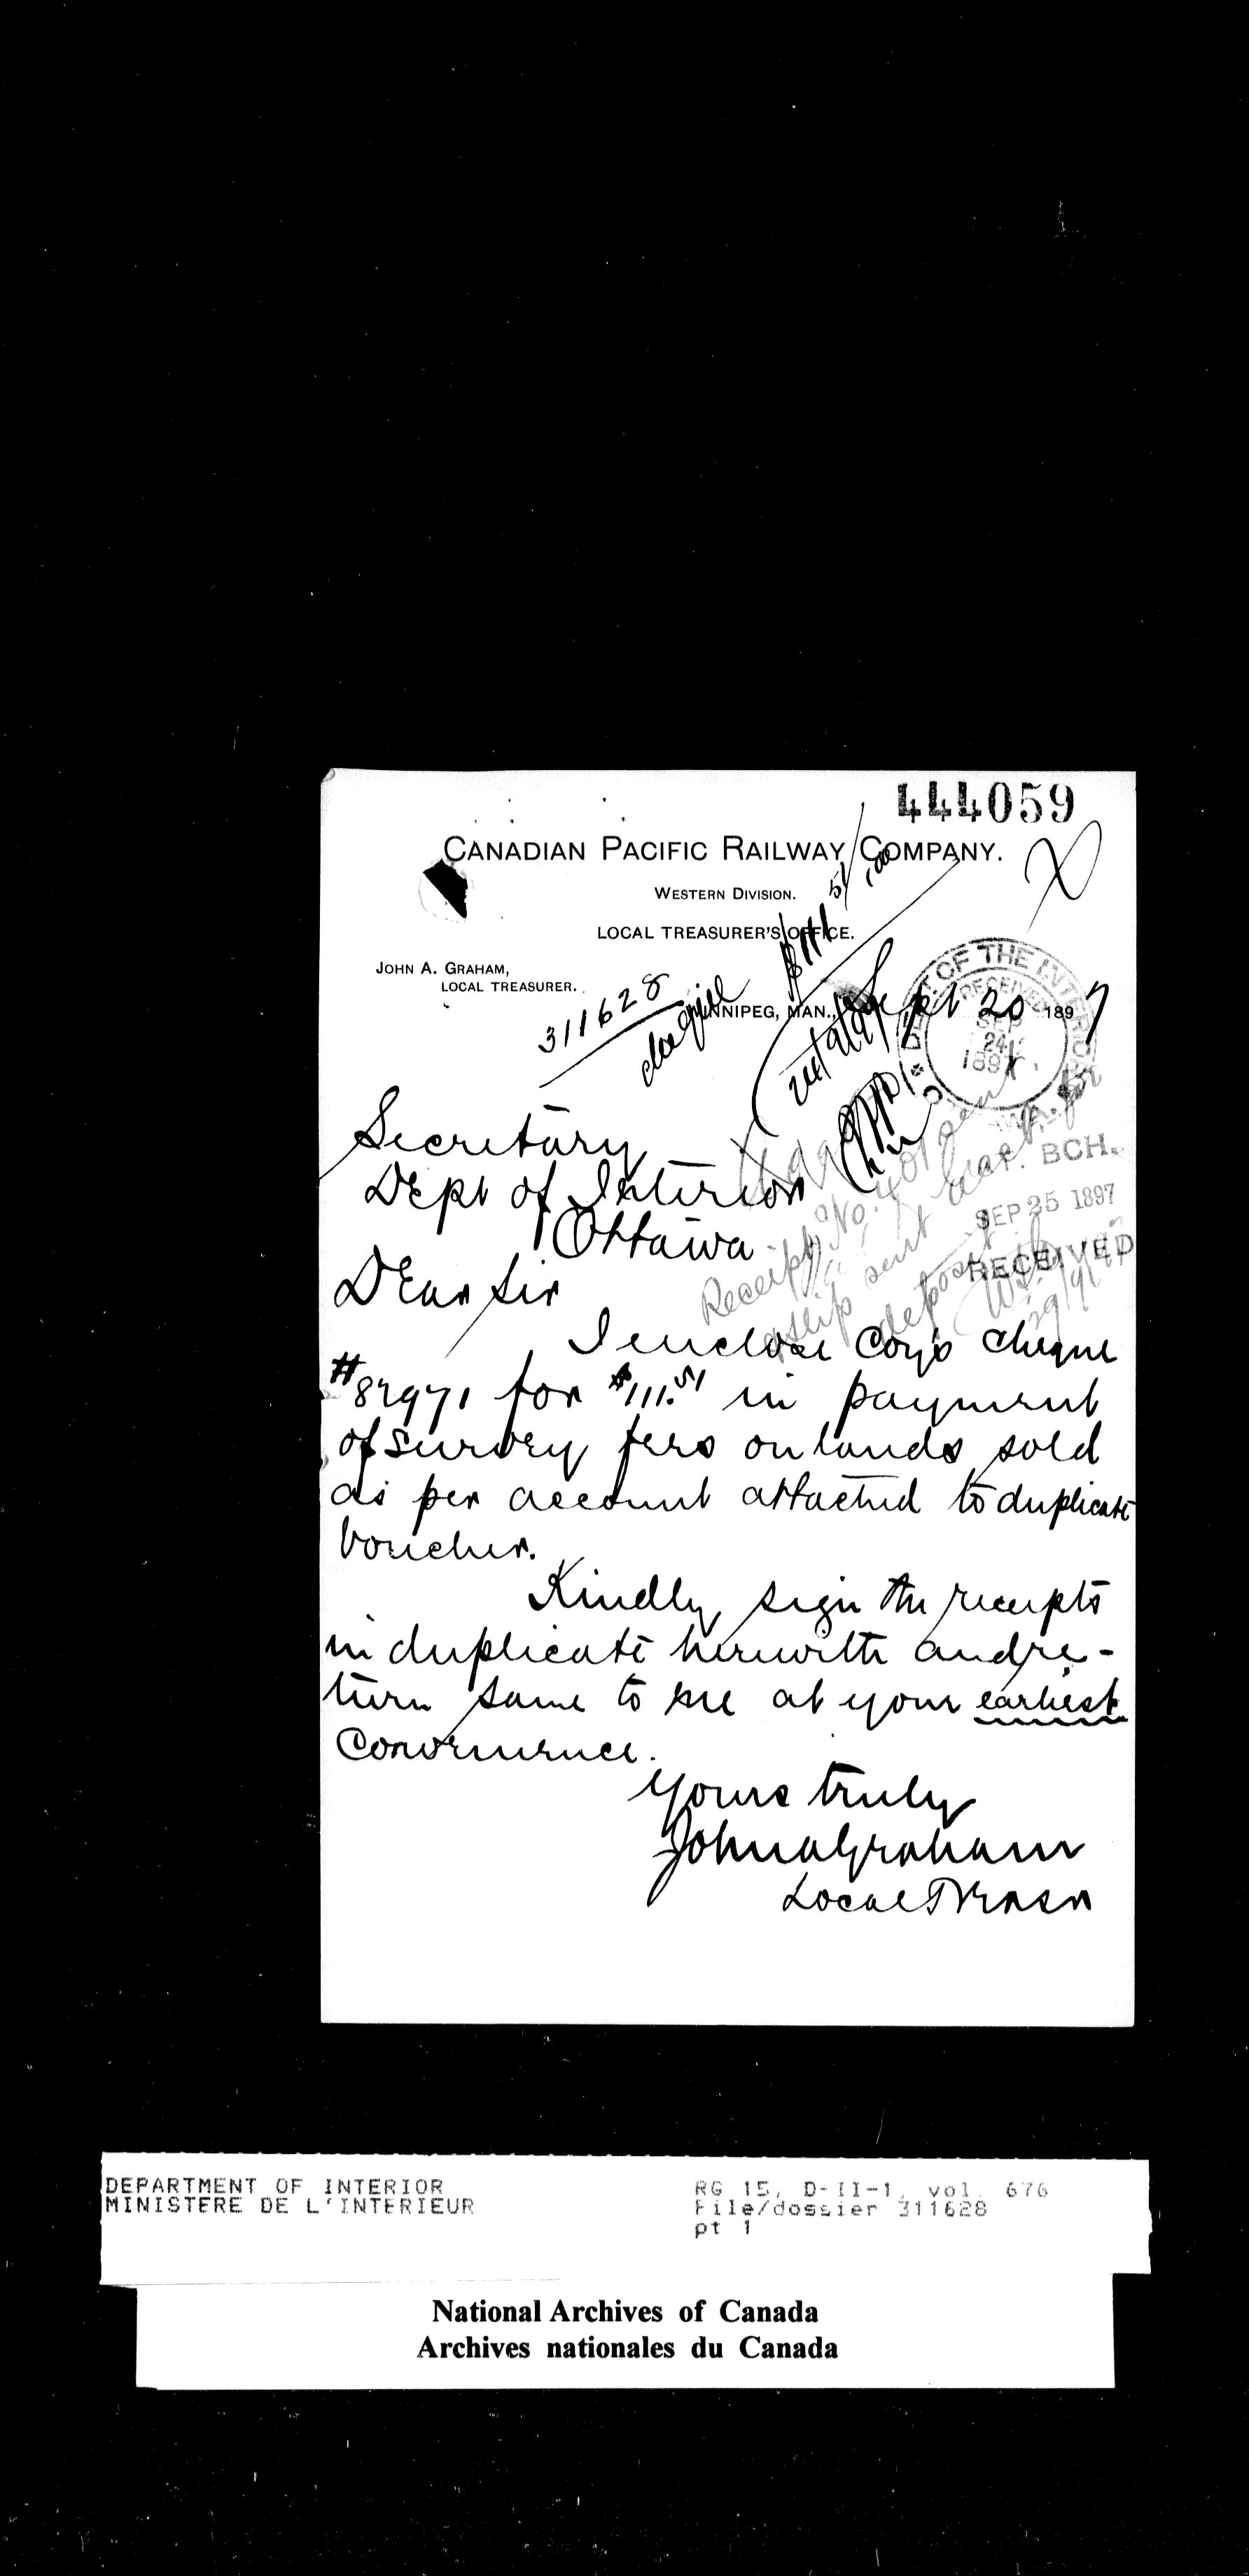 444059
CANADIAN PACIFIC RAILWAY COMPANY.
WESTERN DIVISION.
LOCAL TREASURER'S OFFICE.
JOHN A. GRAHAM,
LOCAL TREASURER.
311628
$111 51/100
WINNIPEG, MAN., Sept 20 1897
DEPT OF THE INTERIOR
RECEIVED
SEP
24
1897
Secretary
Dept of Interior
Ottawa
BCH.
SEP 25 1897
RECEIVED
Receipt No.
slip sent
deposit
Dear Sir
I enclose Coy's cheque
#87971 for $111.51 in payment
of survey fees on lands sold
as per account attached to duplicate
voucher.
Kindly sign the receipts
in duplicate herewith and re-
turn same to me at your earliest
convenience.
Yours truly
John A Graham
Local Treasr
DEPARTMENT OF INTERIOR
MINISTERE DE L'INTERIEUR
RG 15, D-II-1, vol. 676
File/dossier 311628
pt 1
National Archives of Canada
Archives nationales du Canada